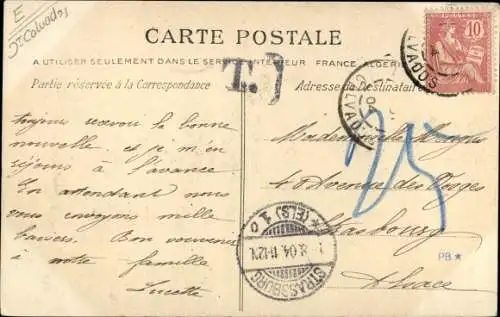 E
St Calvados
CARTE POSTALE
A UTILISER SEULEMENT DANS LE SERVICE INTÉRIEUR FRANCE, ALGÉRIE
Partie réservée à la Correspondance
Adresse du Destinataire
T.
10
POSTES
CALVADOS
CALVADOS
toujours recevoir la bonne
nouvelle. et je m'en
réjouis à l'avance
En attendant nous
vous envoyons mille
baisers. Bon souvenir
à votre famille
Lucette
Mademoiselle
40 Avenue des Vosges
Strasbourg
Alsace
25
STRASSBURG
* (ELS) 1 o
8.04. 11-12V.
PB *